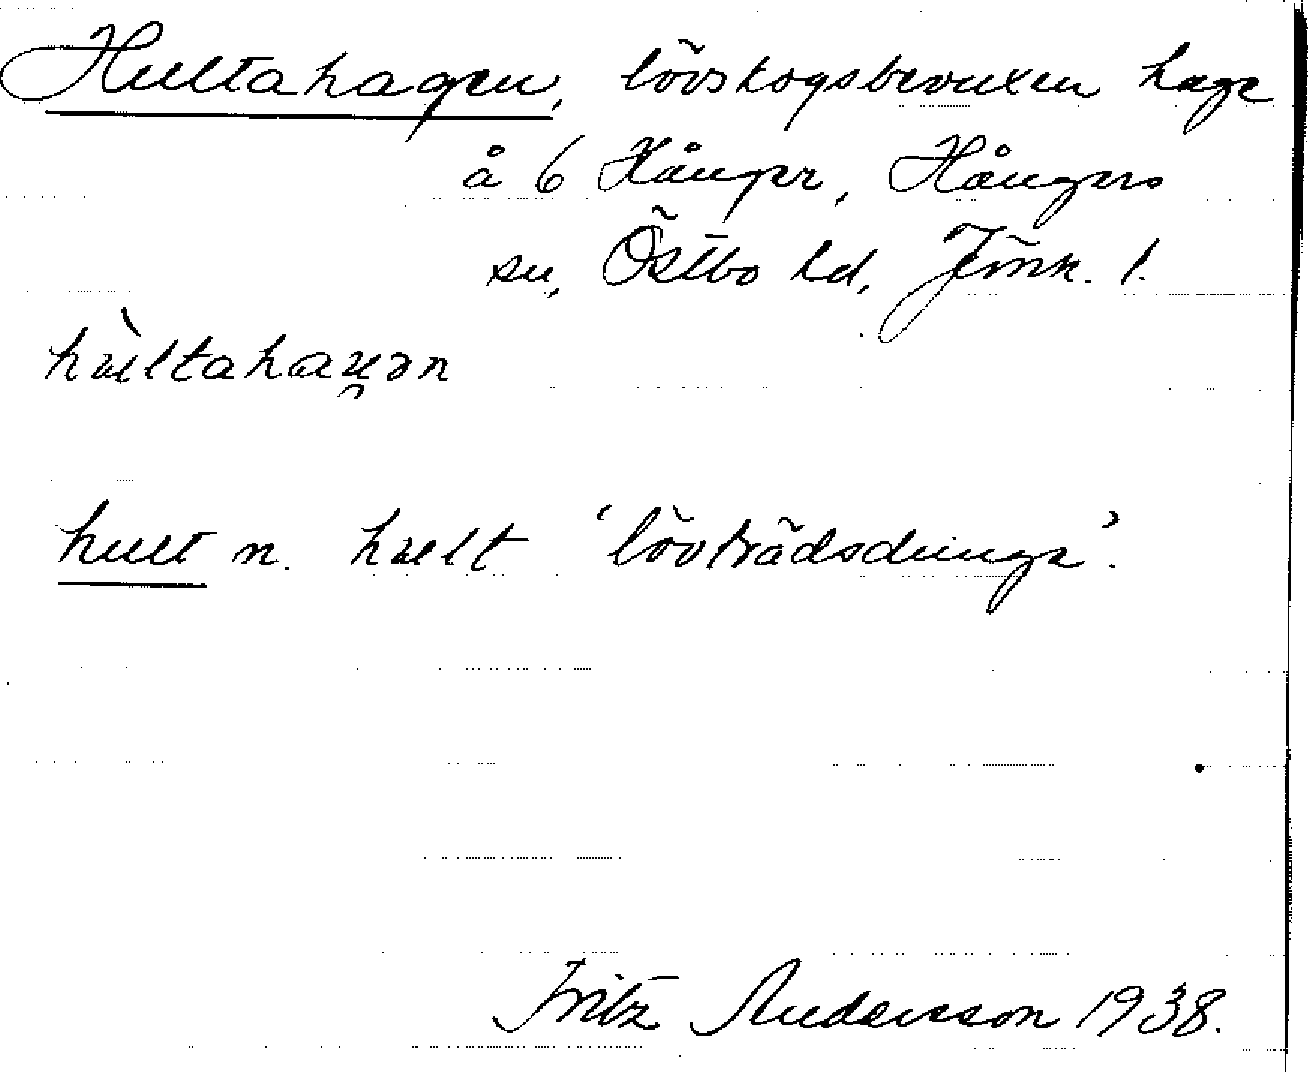 Hultahagen, lövskogsbevuxen hage
å 6 Hånger, Hångers
sn, Östbo hd, Jönk. l.
hùltahaꭎ̯ən
hult n. hult 'lövträdsdunge'.
Fritz Andersson 1938.